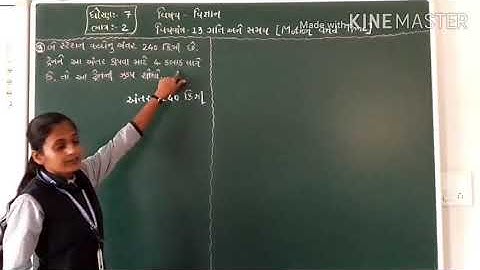 Made with
KINEMASTER
ધોરણ: 7
ભાગ: 2
વિષય - વિજ્ઞાન
પ્રકરણ - 13 ગતિ અને સમય [Motion and Time]
બે સ્ટેશન વચ્ચેનું અંતર 240 કિમી છે.
ટ્રેનને આ અંતર કાપવા માટે 4 કલાક લાગે
છે. તો આ ટ્રેનની ઝડપ શોધો.
અંતર 240 કિમી